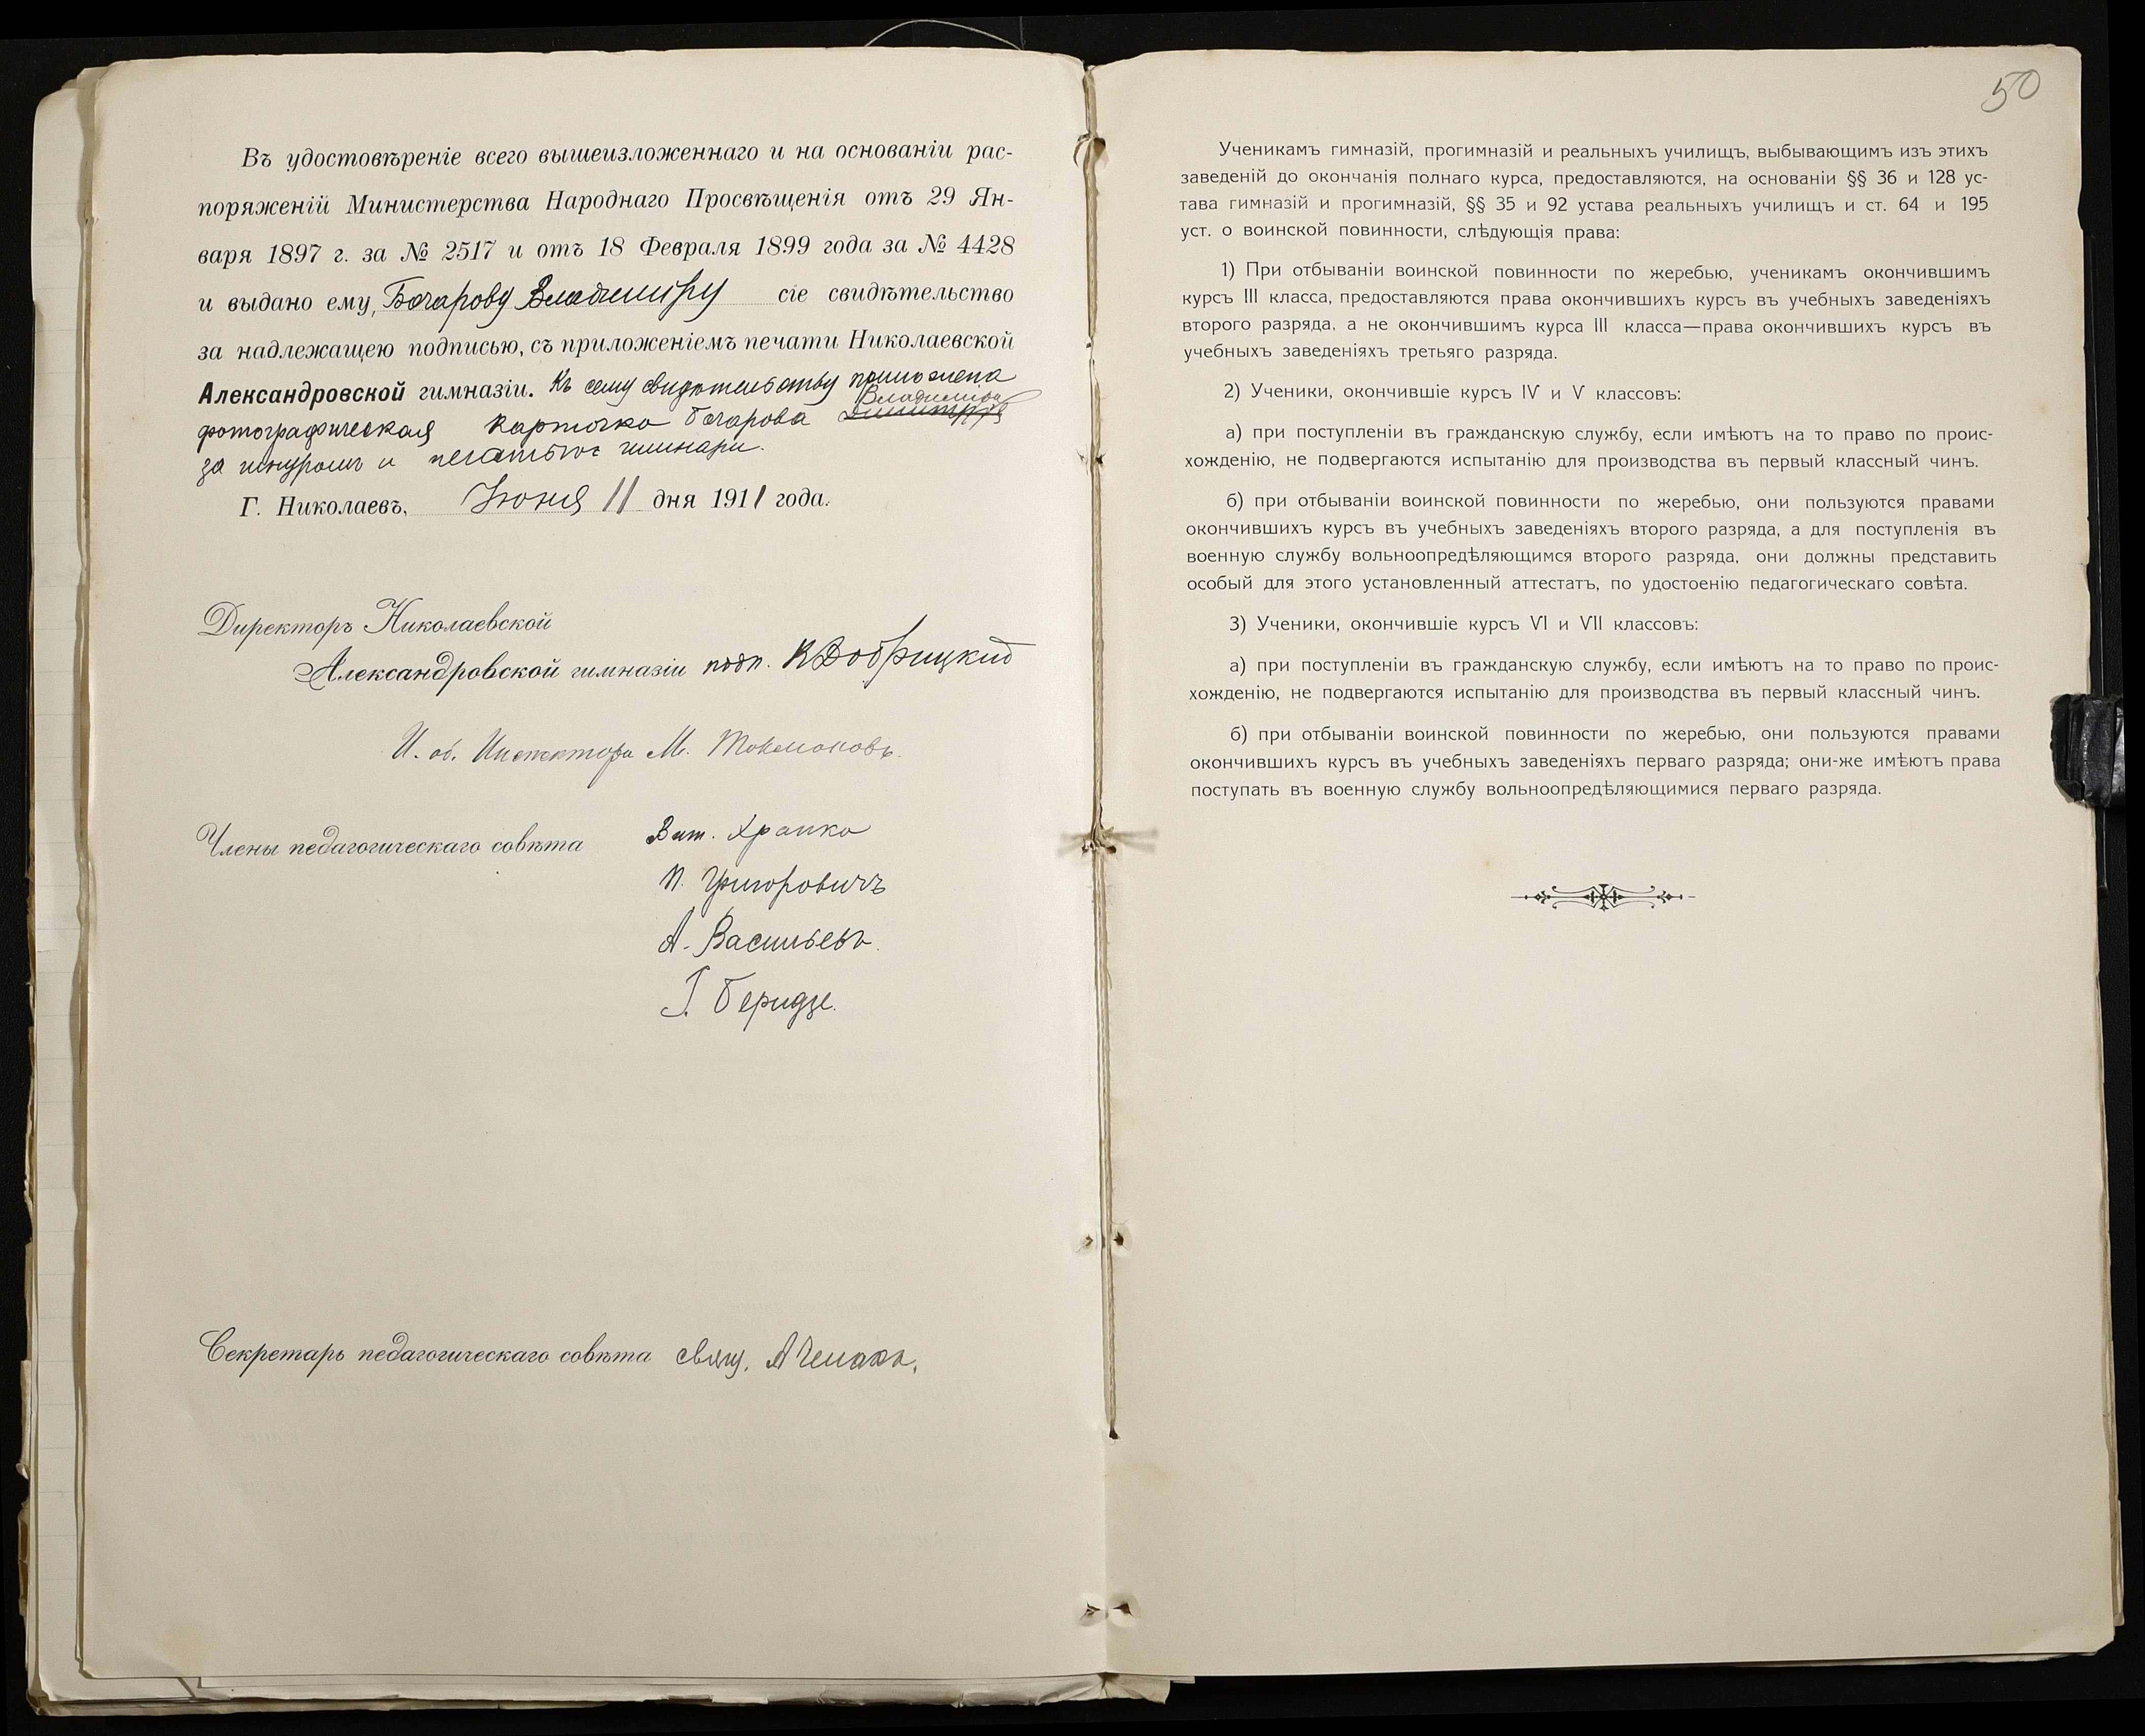 Въ удостовѣреніе всего вышеизложеннаго и на основаніи рас-
поряженій Министерства Народнаго Просвѣщенія отъ 29 Ян-
варя 1897 г. за № 2517 и отъ 18 Февраля 1899 года за № 4428
и выдано ему, Бочарову Владиміру сіе свидѣтельство
за надлежащею подписью, съ приложеніемъ печати Николаевской
Александровской гимназіи. Къ сему свидѣтельству приложена
Владиміра
фотографическая карточка Бочарова
за шнуромъ и печатью гимназіи.
Г. Николаевъ, Іюня 11 дня 1911 года.
Директоръ Николаевской
Александровской гимназіи подп. К Добрицкій
И. об. Инспектора М. Токмаковъ.
Члены педагогическаго совѣта Вит. Храпко
П. Григоровичъ
А. Васильевъ.
Г. Беридзе.
Секретарь педагогическаго совѣта свящ. А
50
Ученикамъ гимназій, прогимназій и реальныхъ училищъ, выбывающимъ изъ этихъ
заведеній до окончанія полнаго курса, предоставляются, на основаніи §§ 36 и 128 ус-
тава гимназій и прогимназій, §§ 35 и 92 устава реальныхъ училищъ и ст. 64 и 195
уст. о воинской повинности, слѣдующія права:
1) При отбываніи воинской повинности по жеребью, ученикамъ окончившимъ
курсъ III класса, предоставляются права окончившихъ курсъ въ учебныхъ заведеніяхъ
второго разряда, а не окончившимъ курса III класса—права окончившихъ курсъ въ
учебныхъ заведеніяхъ третьяго разряда.
2) Ученики, окончившіе курсъ IV и V классовъ:
а) при поступленіи въ гражданскую службу, если имѣютъ на то право по проис-
хожденію, не подвергаются испытанію для производства въ первый классный чинъ.
б) при отбываніи воинской повинности по жеребью, они пользуются правами
окончившихъ курсъ въ учебныхъ заведеніяхъ второго разряда, а для поступленія въ
военную службу вольноопредѣляющимся второго разряда, они должны представить
особый для этого установленный аттестатъ, по удостоенію педагогическаго совѣта.
3) Ученики, окончившіе курсъ VI и VII классовъ:
а) при поступленіи въ гражданскую службу, если имѣютъ на то право по проис-
хожденію, не подвергаются испытанію для производства въ первый классный чинъ.
б) при отбываніи воинской повинности по жеребью, они пользуются правами
окончившихъ курсъ въ учебныхъ заведеніяхъ перваго разряда; они-же имѣютъ права
поступать въ военную службу вольноопредѣляющимися перваго разряда.